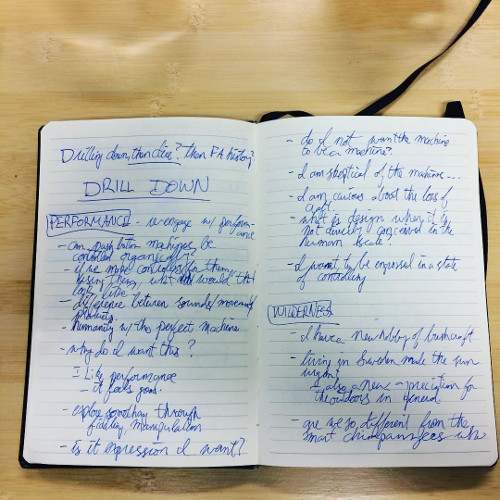 Drilling down, then dice? then FA history?
DRILL DOWN
PERFORMANCE - re-engage w/ perform-
ance
- can push button machines be
controlled organically?
- if we make controls for them
using them, what would that
look like
- difference between sounds/movement/
- humanity w/ the perfect machine
- why do I want this?
I like performance
it feels good.
- explore something through
fidelity manipulation
- is it expression I want?
- do I not want the machine
to be a machine?
- I am skeptical of the machine...
- I am curious about the loss of
- what is design when it is
not directly conceived in the
human scale?
- I want to be engrossed in a state
of
WILDERNESS
- I have a new hobby of bushcraft
- living in Sweden made the sun
urgent
I also a new appreciation for
the outdoors in general
- are we so different from the
smart chimpanzees who